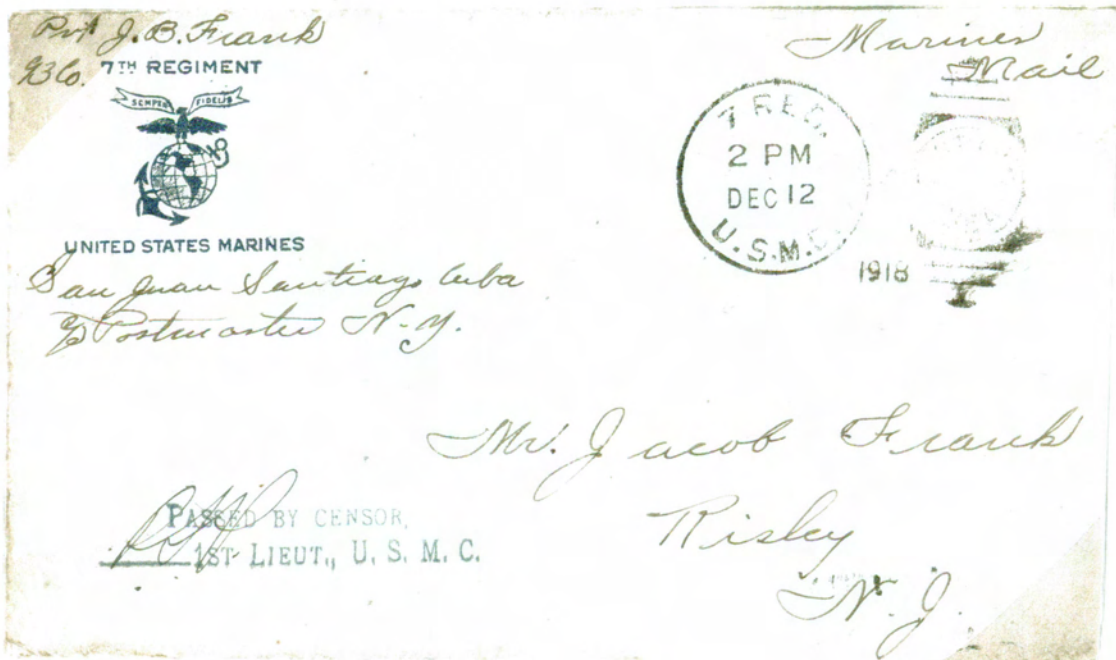 Pvt J. B. Frank
93 Co. 7TH REGIMENT
SEMPER FIDELIS
UNITED STATES MARINES
San Juan Santiago Cuba
℅ Postmaster N.Y.
Marines
Mail
7 REG.
2 PM
DEC 12
U.S.M.C.
1918
Mr. Jacob Frank
Risley
N.J.
PASSED BY CENSOR,
1ST LIEUT., U. S. M. C.